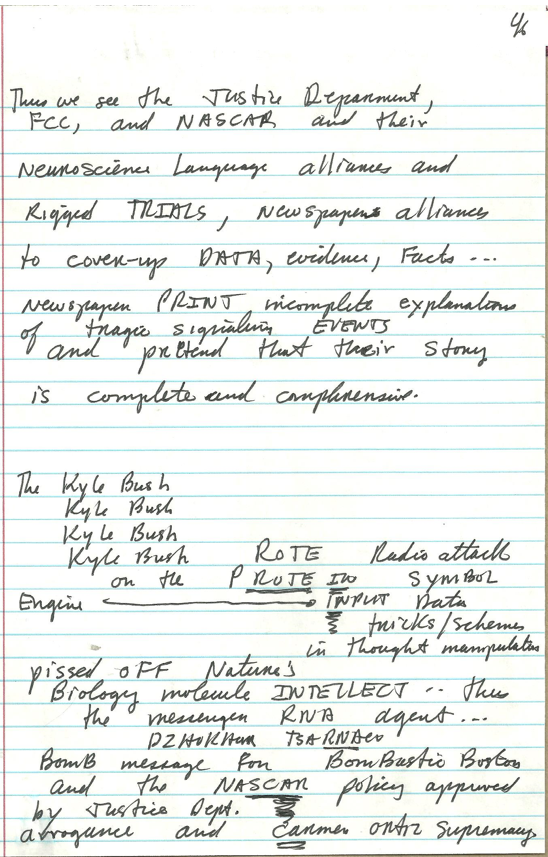 4/6
Thus we see the Justice Deparment,
FCC, and NASCAR and their
Neuroscience Language alliances and
Rigged TRIALS, Newspapers alliances
to cover-up DATA, evidence, Facts ...
Newspaper PRINT incomplete explanations
of tragic signaling EVENTS
and pretend that their story
is complete and comphrensive.
The Kyle Bush
Kyle Bush
Kyle Bush
Kyle Bush ROTE Radio attack
on the PROTEIN SYMBOL
Engine INPUT Data
tricks/schemes
in thought manipulation
pissed OFF Nature's
Biology molecule INTELLECT .. thus
the messenger RNA agent ...
DZHOKHAR TSARNAEV
BomB message for BomBastic Boston
and the NASCAR policy approved
by Justice Dept.
arrogance and Carmen Supremacy